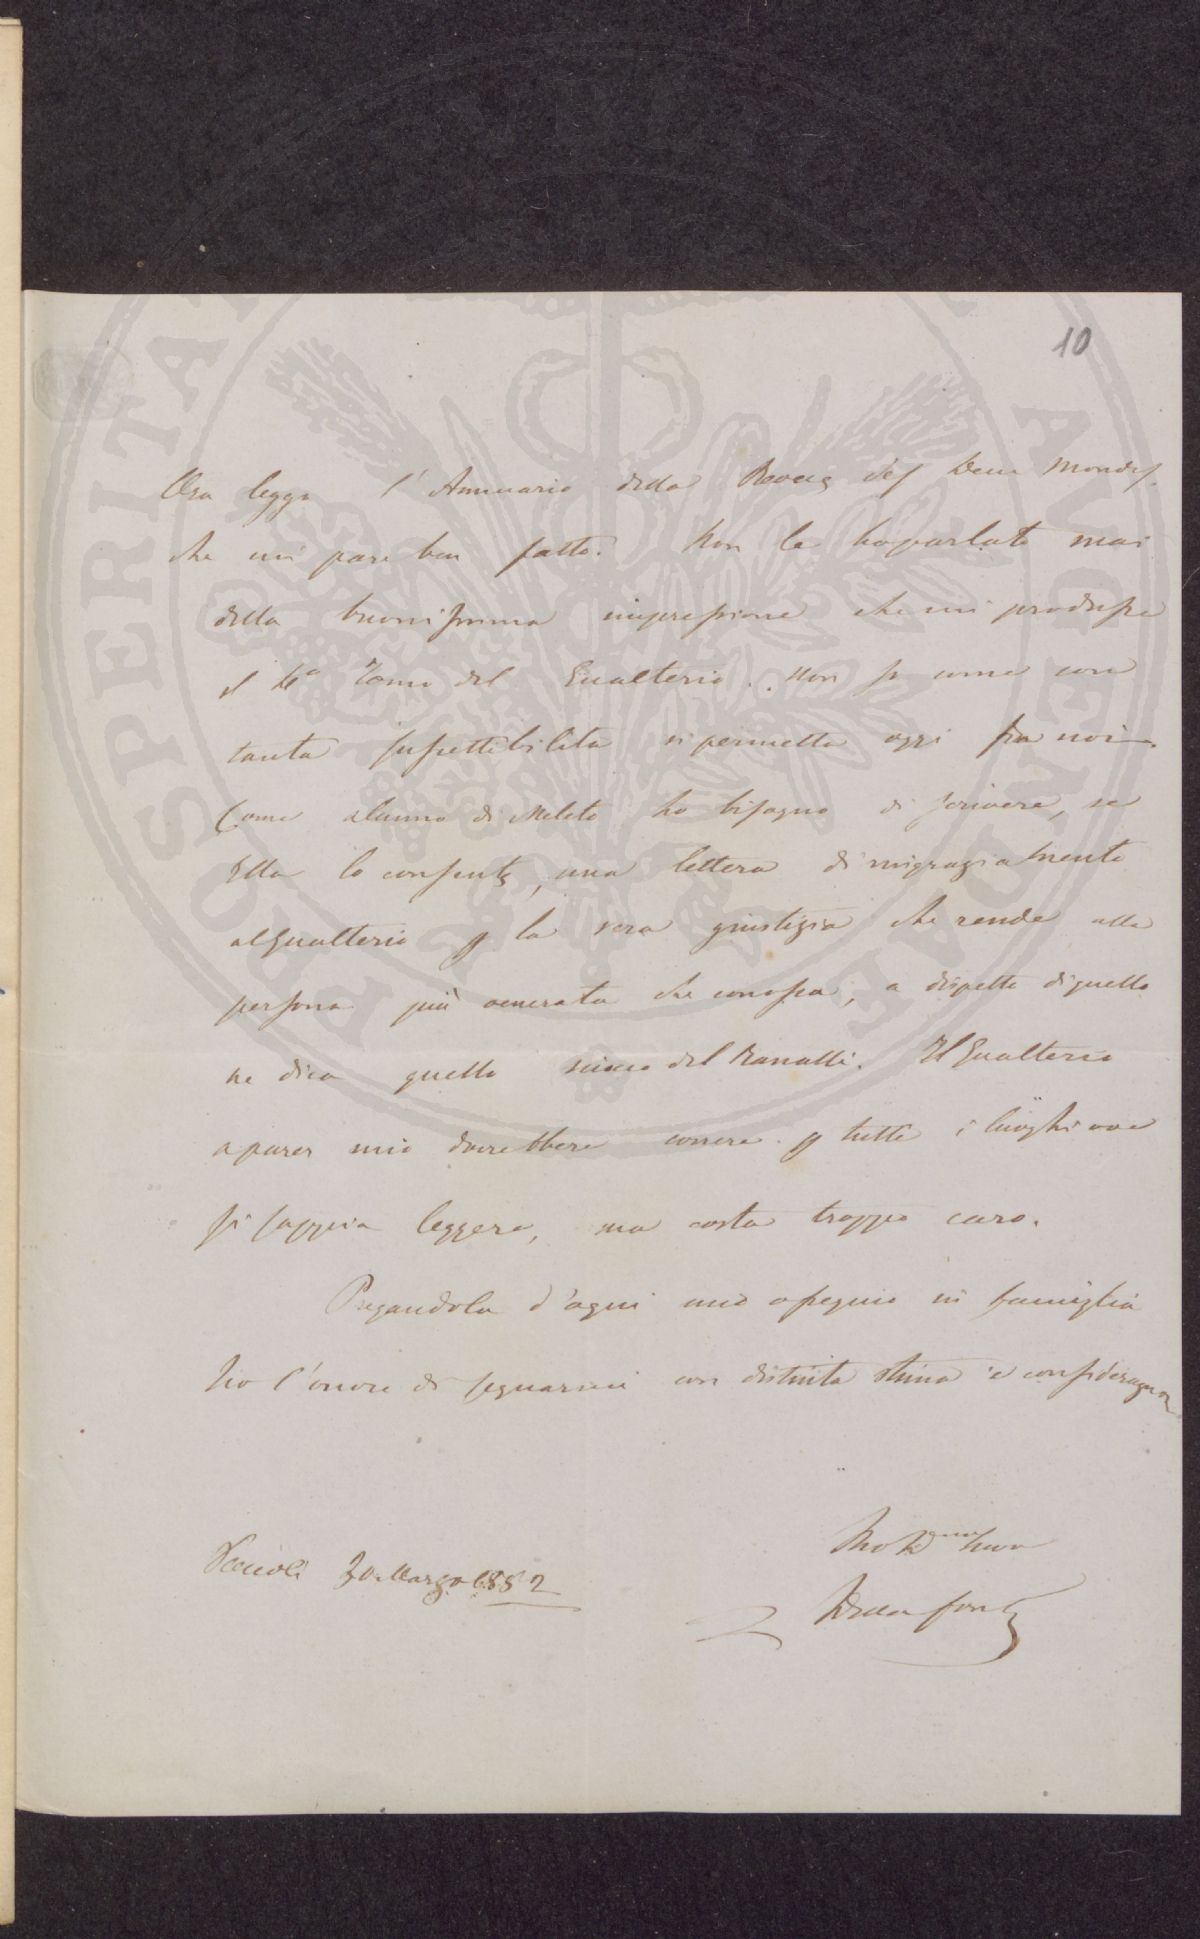 10
Ora leggo l'Annuario della Revue des Deux Mondes,
che mi pare ben fatto. Non le ho parlato mai
della buonissima impressione che mi produsse
il 4º Tomo del Gualterio. Non so come con
tanta suscettibilità si permetta oggi fra noi.
Come alunno di Meleto ho bisogno di scrivere, se
Ella lo consente, una lettera di ringraziamento
al Gualterio p la vera giustizia che rende alla
persona più venerata che conosca, a dispetto di quello
ne dica quello del Ranalli. Il Gualterio
a parer mio dovrebbere correre p tutti i luoghi ove
si sappia leggere, ma costa troppo caro.
Pregandola d'ogni mio ossequio in famiglia
ho l'onore di segnarmi con distinta stima e considerazione
Peccioli 30 Marzo 1852
PROSPERITAS AVGENDAE